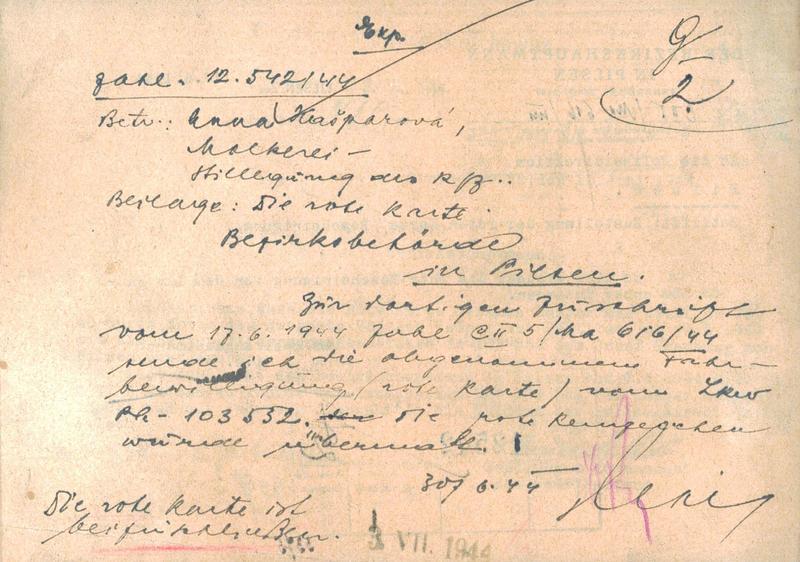 Exp.
G/2
Zahl. 12.542/44
Betr.: Anna Kašparová,
Molkerei –
Stillegung des Kfz..
Beilage: Die rote Karte.
Bezirksbehörde
in Pilsen.
Zur dortigen Zuschrift
vom 17.6.1944 Zahl C II 5/Ma 616/44
sende ich die abgenommene Fahr-
bewilligung (rote Karte) vom Lkw
PA- 103552. die rote Kennzeichen
wurde übermalt.
30/6.44
Die rote Karte ist
beizuschließen.
3 VII. 1944